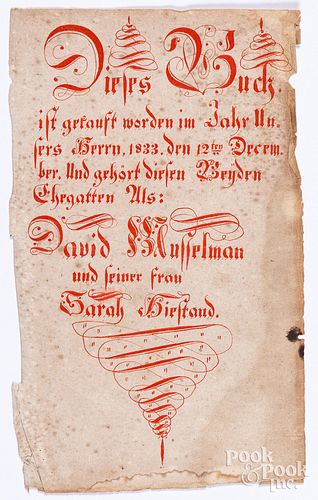 Dieses Buch.
ist gekauft worden im Jahr Un-
sers Herrn, 1833. den 12ten Decem-
ber. Und gehört diesen Beÿden
Ehegatten Als:
David Musselman
und seiner frau
Sarah Hiestand.
Pook
& Pook
Inc.